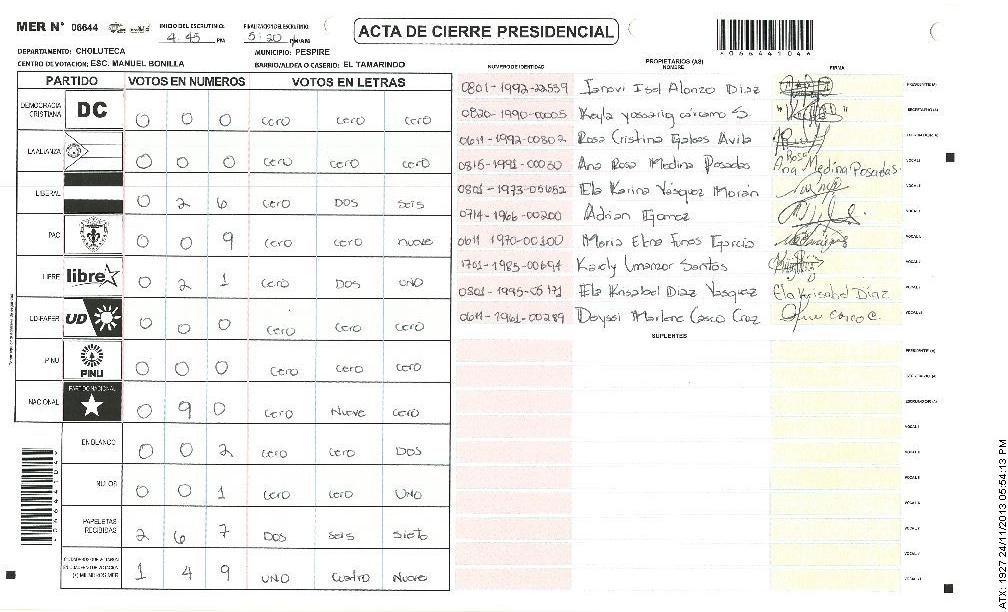 MER N° 06644
INICIO DEL ESCRUTINIO: 4:45 PM
FINALIZACION DEL ESCRUTINIO: 5:20 PM/AM
ACTA DE CIERRE PRESIDENCIAL
DEPARTAMENTO: CHOLUTECA
MUNICIPIO: PESPIRE
CENTRO DE VOTACION: ESC. MANUEL BONILLA
BARRIO/ALDEA O CASERIO: EL TAMARINDO
PARTIDO VOTOS EN NUMEROS VOTOS EN LETRAS
DEMOCRACIA CRISTIANA DC 0 0 0 cero cero cero
LA ALIANZA 0 0 0 cero cero cero
LIBERAL 0 2 6 cero DOS seis
PAC 0 0 9 cero cero nueve
LIBRE libre 0 2 1 cero DOS UNO
UD-FAPER UD 0 0 0 cero cero cero
PINU PINU 0 0 0 cero cero cero
NACIONAL PARTIDO NACIONAL 0 9 0 cero Nueve cero
EN BLANCO 0 0 2 cero cero DOS
NULOS 0 0 1 cero cero UNO
PAPELETAS RECIBIDAS 2 6 7 DOS seis siete
(+) MIEMBROS MER 1 4 9 UNO cuatro Nueve
PROPIETARIOS (AS)
NUMERO DE IDENTIDAD NOMBRE FIRMA
0801-1992-22559 Isel Alonzo Diaz PRESIDENTE (A)
0820-1990-00005 Keyla cárcamo S. SECRETARIO (A)
0611-1992-00802 Rosa Cristina Avila ESCRUTADOR (A)
0815-1991-00030 Ana Rosa Medina Posadas Ana Rosa Medina Posadas. VOCAL
0801-1973-05652 Ela Karina Vásquez Morán VOCAL
0714-1966-00200 Adrian Gomez VOCAL
0611-1970-00100 Maria Elena Funes Garcia VOCAL
1701-1985-00694 Karly Umanzor Santos VOCAL
0801-1995-05171 Ela Krisabel Diaz Vasquez Ela Krisabel Díaz VOCAL
0611-1961-00289 Deyssi Marlene Casco Cruz Casco C. VOCAL
SUPLENTES
PRESIDENTE (A)
SECRETARIO (A)
ESCRUTADOR (A)
VOCAL
VOCAL
VOCAL
VOCAL
VOCAL
VOCAL
VOCAL
ATX: 1927 24/11/2013 05:54:13 PM